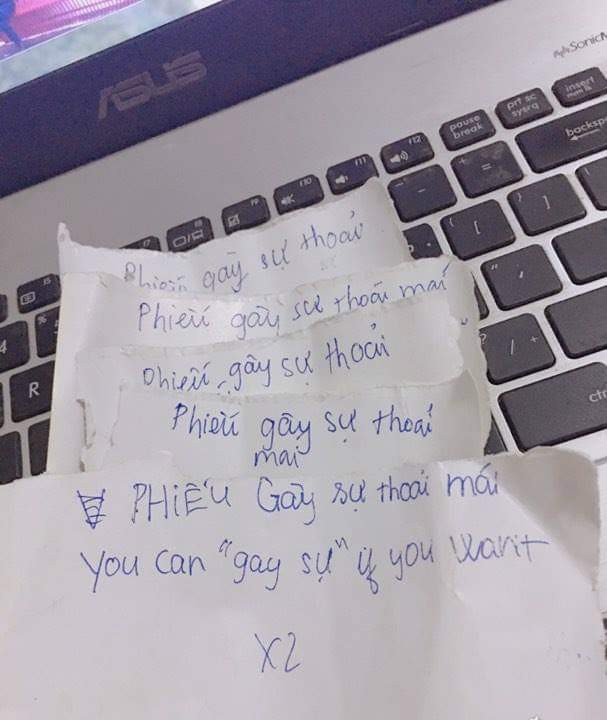 ASUS
SonicM
prt sc
sysrq
insert
pause
break
backsp
f12
f11
f10
f9
R
4
ctr
Phiếu gây sự thoải
Phiếu gây sự thoải mái
Phiếu gây sự thoải
Phiếu gây sự thoải
mái
PHIẾU Gây sự thoải mái
You can "gay sự" if you want
X2